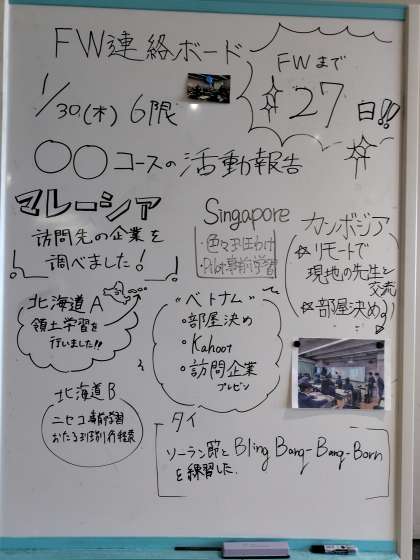 FW連絡ボード
FWまで
27日!!
1/30.(木) 6限
〇〇コースの活動報告
マレーシア
訪問先の企業を
調べました!
Singapore
・色々班わけ
・Pilot事前学習
カンボジア
☆リモートで
現地の先生と
交流
☆部屋決め。
北海道A
領土学習を
行いました!!
"ベトナム"
・部屋決め
・Kahoot
・訪問企業
プレゼン
北海道B
ニセコ事前学習
おたる班別行程
タイ
ソーラン節とBling Bang-Bang-Born
を練習した